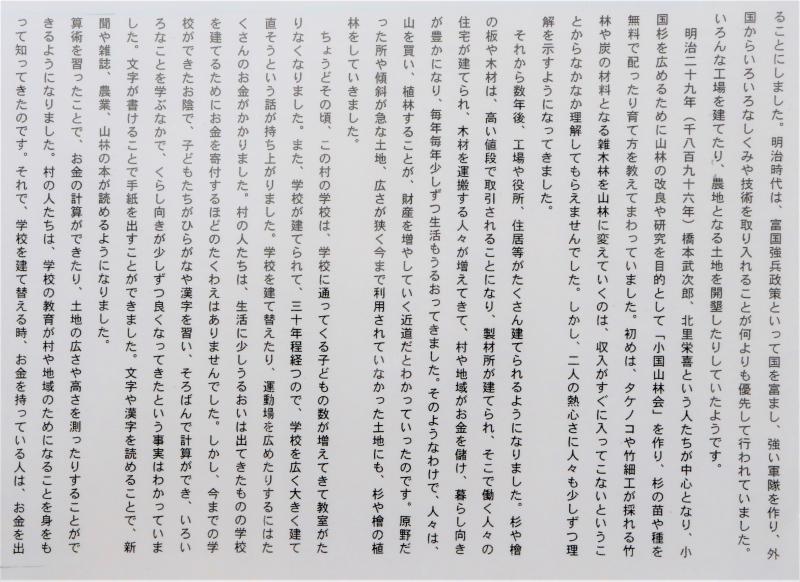 ることにしました。明治時代は、富国強兵政策といって国を富まし、強い軍隊を作り、外
国からいろいろなしくみや技術を取り入れることが何よりも優先して行われていました。
いろんな工場を建てたり、農地となる土地を開墾したりしていたようです。
明治二十九年（千八百九十六年）橋本武次郎、北里栄喜という人たちが中心となり、小
国杉を広めるために山林の改良や研究を目的として「小国山林会」を作り、杉の苗や種を
無料で配ったり育て方を教えてまわっていました。初めは、タケノコや竹細工が採れる竹
林や炭の材料となる雑木林を山林に変えていくのは、収入がすぐに入ってこないというこ
とからなかなか理解してもらえませんでした。しかし、二人の熱心さに人々も少しずつ理
解を示すようになってきました。
それから数年後、工場や役所、住居等がたくさん建てられるようになりました。杉や檜
の板や木材は、高い値段で取引されることになり、製材所が建てられ、そこで働く人々の
住宅が建てられ、木材を運搬する人々が増えてきて、村や地域がお金を儲け、暮らし向き
が豊かになり、毎年毎年少しずつ生活もうるおってきました。そのようなわけで、人々は、
山を買い、植林することが、財産を増やしていく近道だとわかっていったのです。原野だ
った所や傾斜が急な土地、広さが狭く今まで利用されていなかった土地にも、杉や檜の植
林をしていきました。
ちょうどその頃、この村の学校は、学校に通ってくる子どもの数が増えてきて教室がた
りなくなりました。また、学校が建てられて、三十年程経つので、学校を広く大きく建て
直そうという話が持ち上がりました。学校を建て替えたり、運動場を広めたりするにはた
くさんのお金がかかりました。村の人たちは、生活に少しうるおいは出てきたものの学校
を建てるためにお金を寄付するほどのたくわえはありませんでした。しかし、今までの学
校ができたお陰で、子どもたちがひらがなや漢字を習い、そろばんで計算ができ、いろい
ろなことを学ぶなかで、くらし向きが少しずつ良くなってきたという事実はわかっていま
した。文字が書けることで手紙を出すことができました。文字や漢字を読めることで、新
聞や雑誌、農業、山林の本が読めるようになりました。
算術を習ったことで、お金の計算ができたり、土地の広さや高さを測ったりすることがで
きるようになりました。村の人たちは、学校の教育が村や地域のためになることを身をも
って知ってきたのです。それで、学校を建て替える時、お金を持っている人は、お金を出